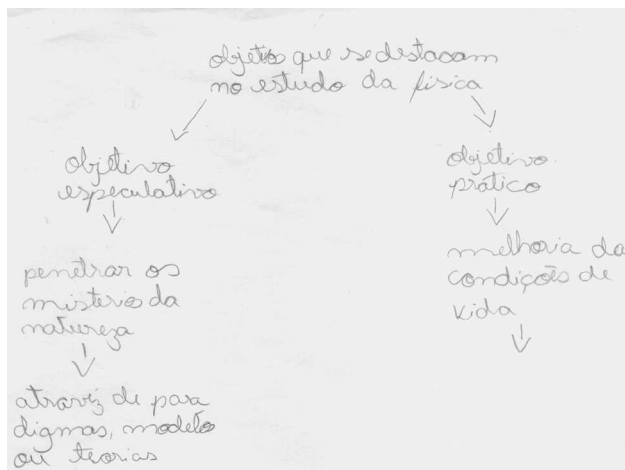 objetos que se destacam
no estudo da física
objetivo
especulativo
penetrar os
misterios da
natureza
atravéz de para
digmas, modelos
ou teorias
objetivo
prático
melhoria da
condições de
vida